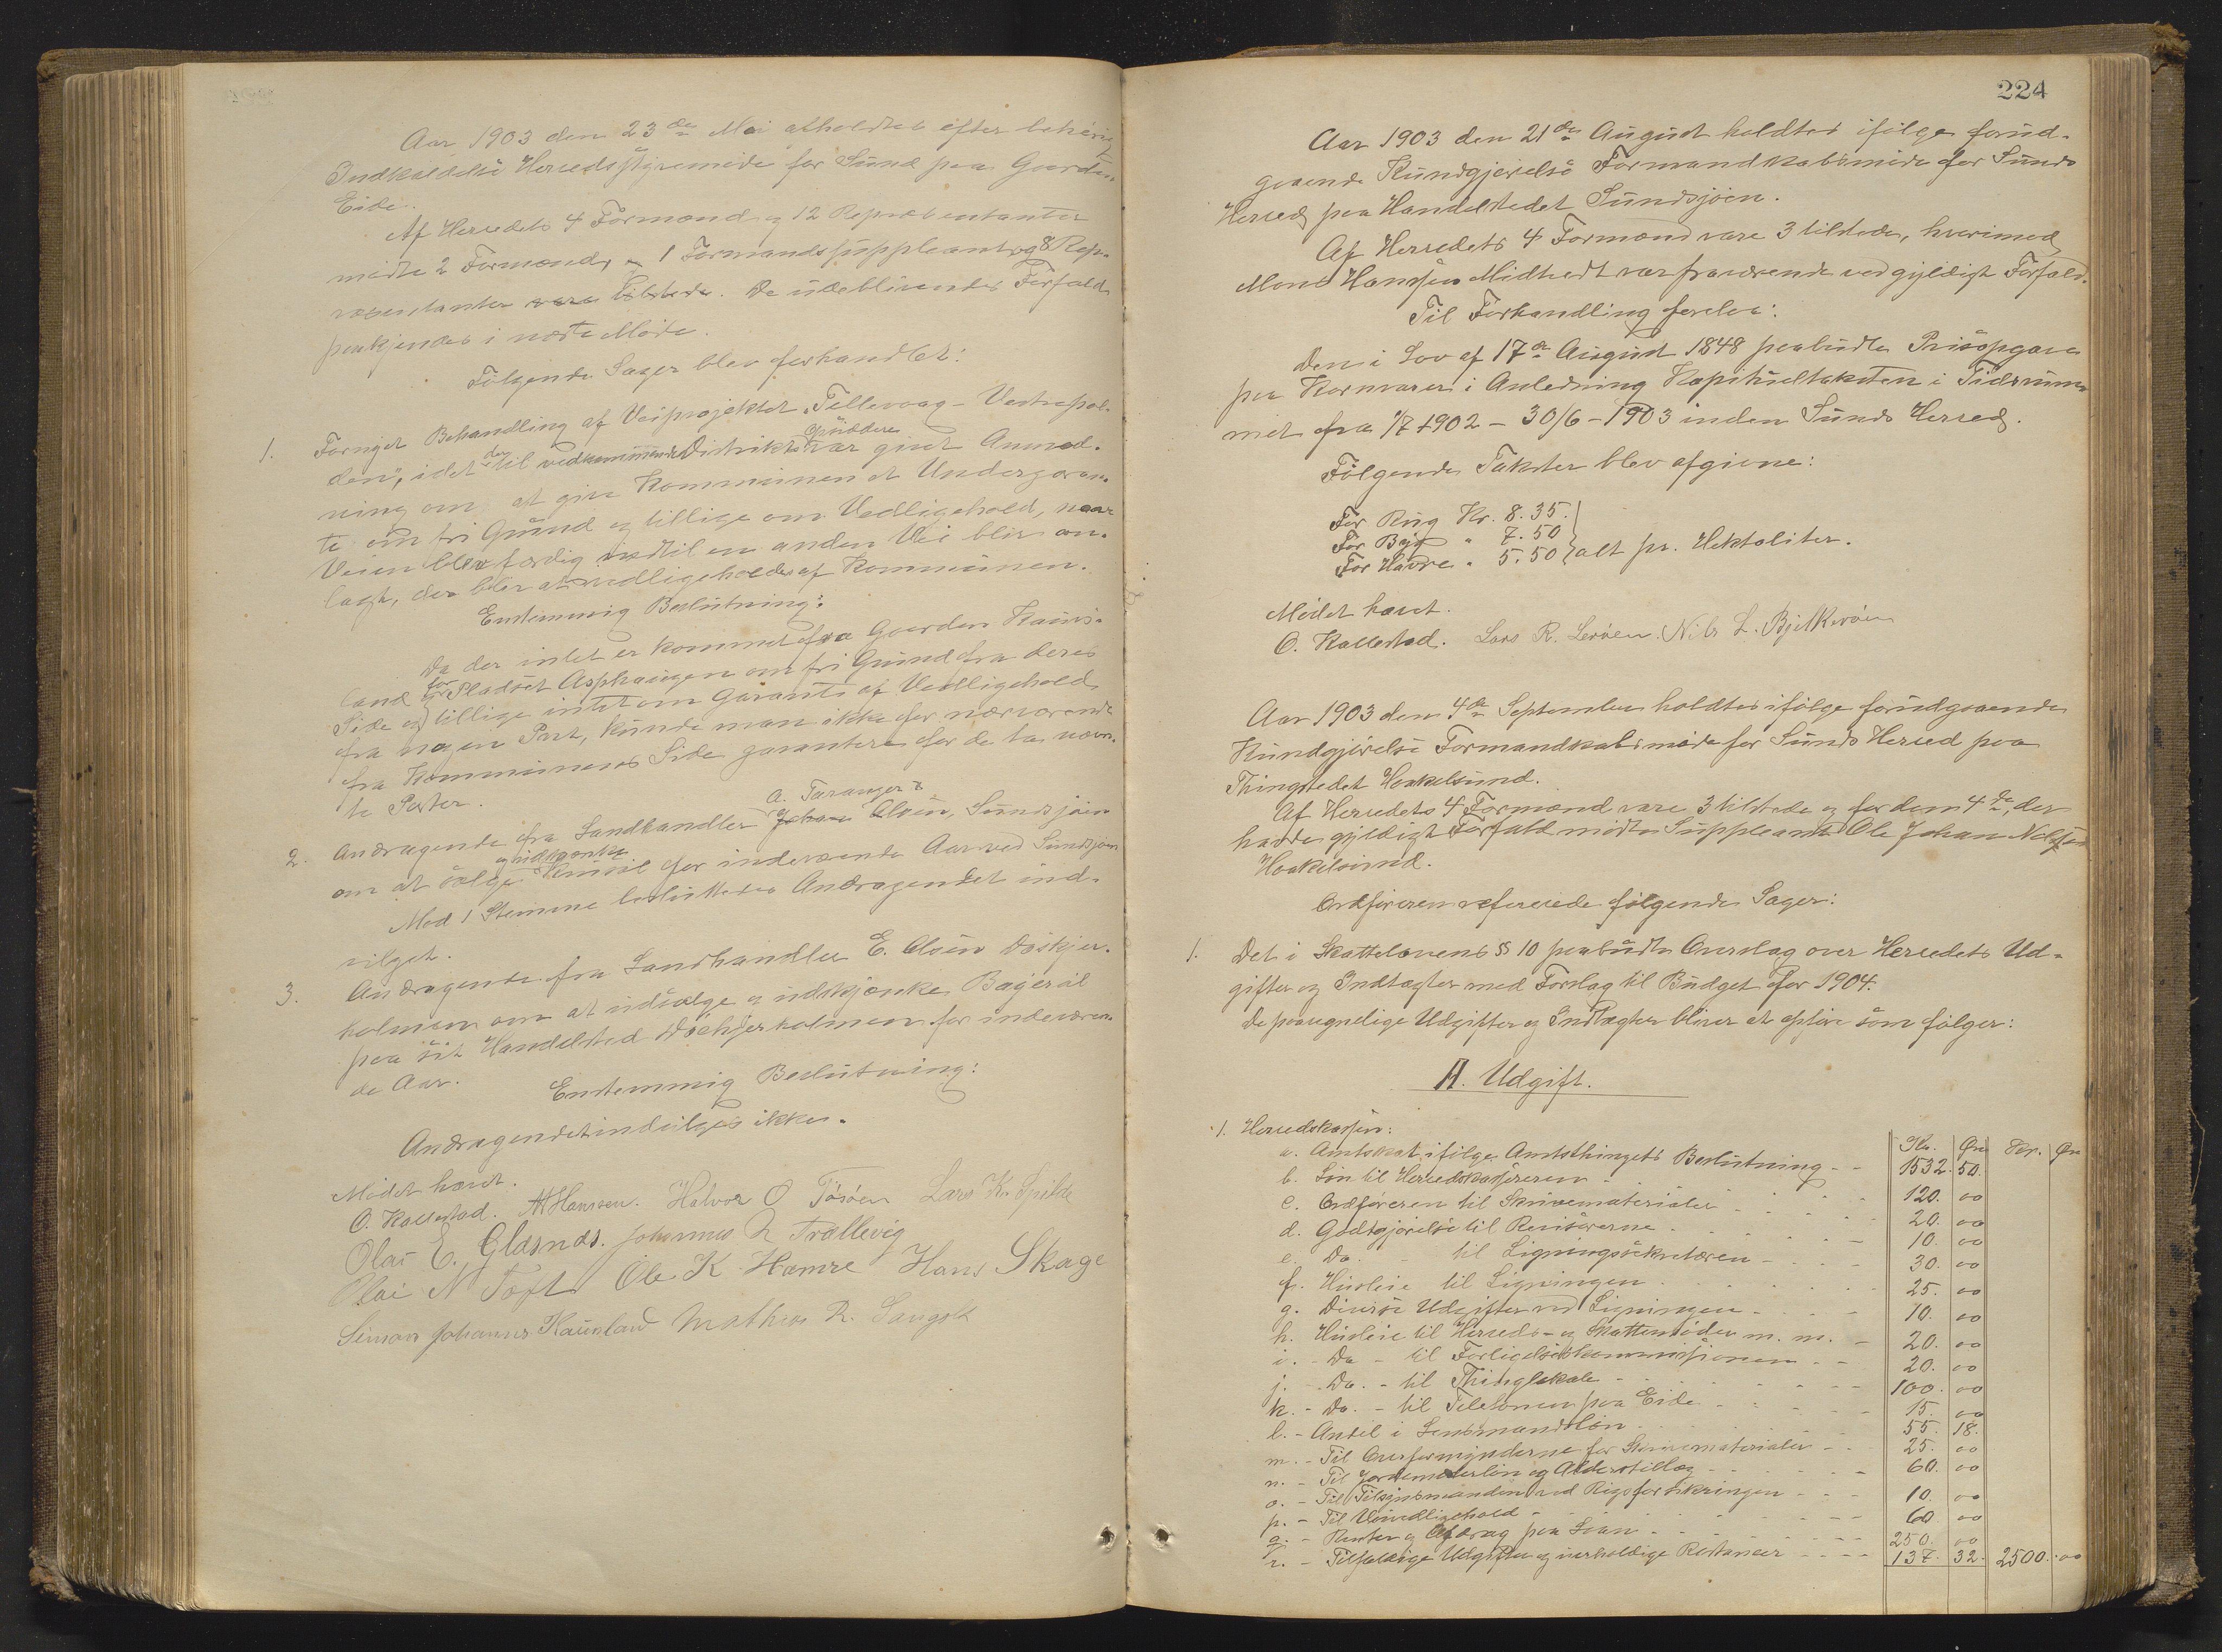 Aar 1903 den 23de Mai afholdtes efter behørig
Indkaldelse Herredsstyremøde for Sund paa Gaarden
Eide.
Af Herredets 4 Formænd og 12 Repræsentanter
mødte 2 Formænd, 1 Formandssuppleant og 8 Rep-
ræsentanter vare tilstede. De udeblivendes Forfald
paakjendes i næste Møde.
Følgende Sager blev forhandlet:
1. Fornyet Behandling af Veiprojektet "Tellevaag - Vestrepol-
den", idet der til vedkommende Distrikts Opsiddere var givet Anmod-
ning om at give Kommunen et Undergaran-
te om fri Grund og tillige om Vedligehold, naar
Veien blev færdig indtil en anden Vei blir an-
lagt, der blir at vedligeholdes af Kommunen.
Enstemmig Beslutning:
Da der intet er kommet fra Gaarden Kaus-
land for Pladset Asphaugen om fri Grund fra deres
Side og tillige intet om Garanti af Vedligehold
fra nogen Part, kunde man ikke for nærværende
fra Kommunens Side garantere for de to nævn-
te Poster.
2. Andragende fra Landhandler Johan A. Taranger Olsen, Sundsjøen
om at sælge og udskjænke for indeværende Aar ved Sundsjøen
Mod 1 Stemme besluttedes Andragendet ind-
vilget.
3. Andragende fra Landhandler E. Olsen Døskjer-
holmen om at udsælge og udskjænke Bajerøl
paa sit Handelsted Døskjerholmen for indeværen-
de Aar.
Enstemmig Beslutning:
Andragendet indvilges ikke.
Mødet hævet.
O. Kallestad. Hansen. Halvor O Tøsøen Lars K. Spilde
Olai E. Glæsnæs. Johannes Trællevig
Olai N Toft Ole K Hamre Hans Skage
Simon Johannes Kausland Mathias R. Sangolt
224
Aar 1903 den 21de August holdtes ifølge forud-
gaaende Kundgjørelse Formandskabsmøde for Sunds
Herred paa Handelstedet Sundsjøen.
Af Herredets 4 Formænd vare 3 tilstede, hvorimod
Mons Hanssen Midttvedt var fraværende ved gyldigt Forfald.
Til Forhandling forelaa:
Den i Lov af 17de August 1848 paabudte Prisopgave
paa Kornvarer i Anledning Kapitseltaksten i Tidsrum-
met fra 1/7 1902 - 30/6 - 1903 inden Sunds Herred.
Følgende Takster blev afgivne:
For Rug Kr. 8.35.
For Byg " 7.50
For Havre " 5.50 alt pr. Hektoliter.
Mødet hævet.
O. Kallestad. Lars R. Lerøen. Nils L. Bjelkerøen
Aar 1903 den 4de September holdtes ifølge forudgaaende
Kundgjørelse Formandskabsmøde for Sunds Herred paa
Thingstedet Høkelsund.
Af Herredets 4 Formænd vare 3 tilstede og for dem 4de, der
havde gyldigt Forfald mødte Suppleant Ole Johan Nilssen
Høkelsund.
Ordføreren refererede følgende Sager:
1. Det i Skattelovens § 10 paabudte Overslag over Herredets Ud-
gifter og Indtægter med Forslag til Budget for 1904.
De paaregnelige Udgifter og Indtægter bliver at opføre som følger:
A. Udgift.
1. Herredskassen:
Kr. Øre Kr. Øre
a. Amtsskat ifølge Amtsthingets Beslutning - - 1532. 50.
b. Løn til Herredskassereren 120. 00
c. Ordføreren til Skrivematerialer 20. 00
d. Godtgjørelse til Revisorerne 10. 00
e. Do. - til Ligningssekretæren 30. 00
f. Husleie til Ligningen 25. 00
g. Diverse Udgifter ved Ligningen 10. 00
h. Husleie til Herreds- og Skattemøder m. m. 20. 00
i. - Do - til Forligelseskommissionen 20. 00
j. - Do. - til Thinglokale 100. 00
k. - Do. - til Telefonen paa Eide 15. 00
l. - Andel i Lensmandsløn 55. 18.
m. - Til Overformynderne for Skrivematerialer 25. 00
n. - Til Jordemoderløn og Alderstillæg 60. 00
o. - Til Tilsynsmanden ved Rigsforsikringen 10. 00
p. - Til Veivedligehold 60 00
q. - Renter og Afdrag paa Laan 250. 00
r. - Tilfældige Udgifter og uerholdige Restancer 137. 32. 2500. 00